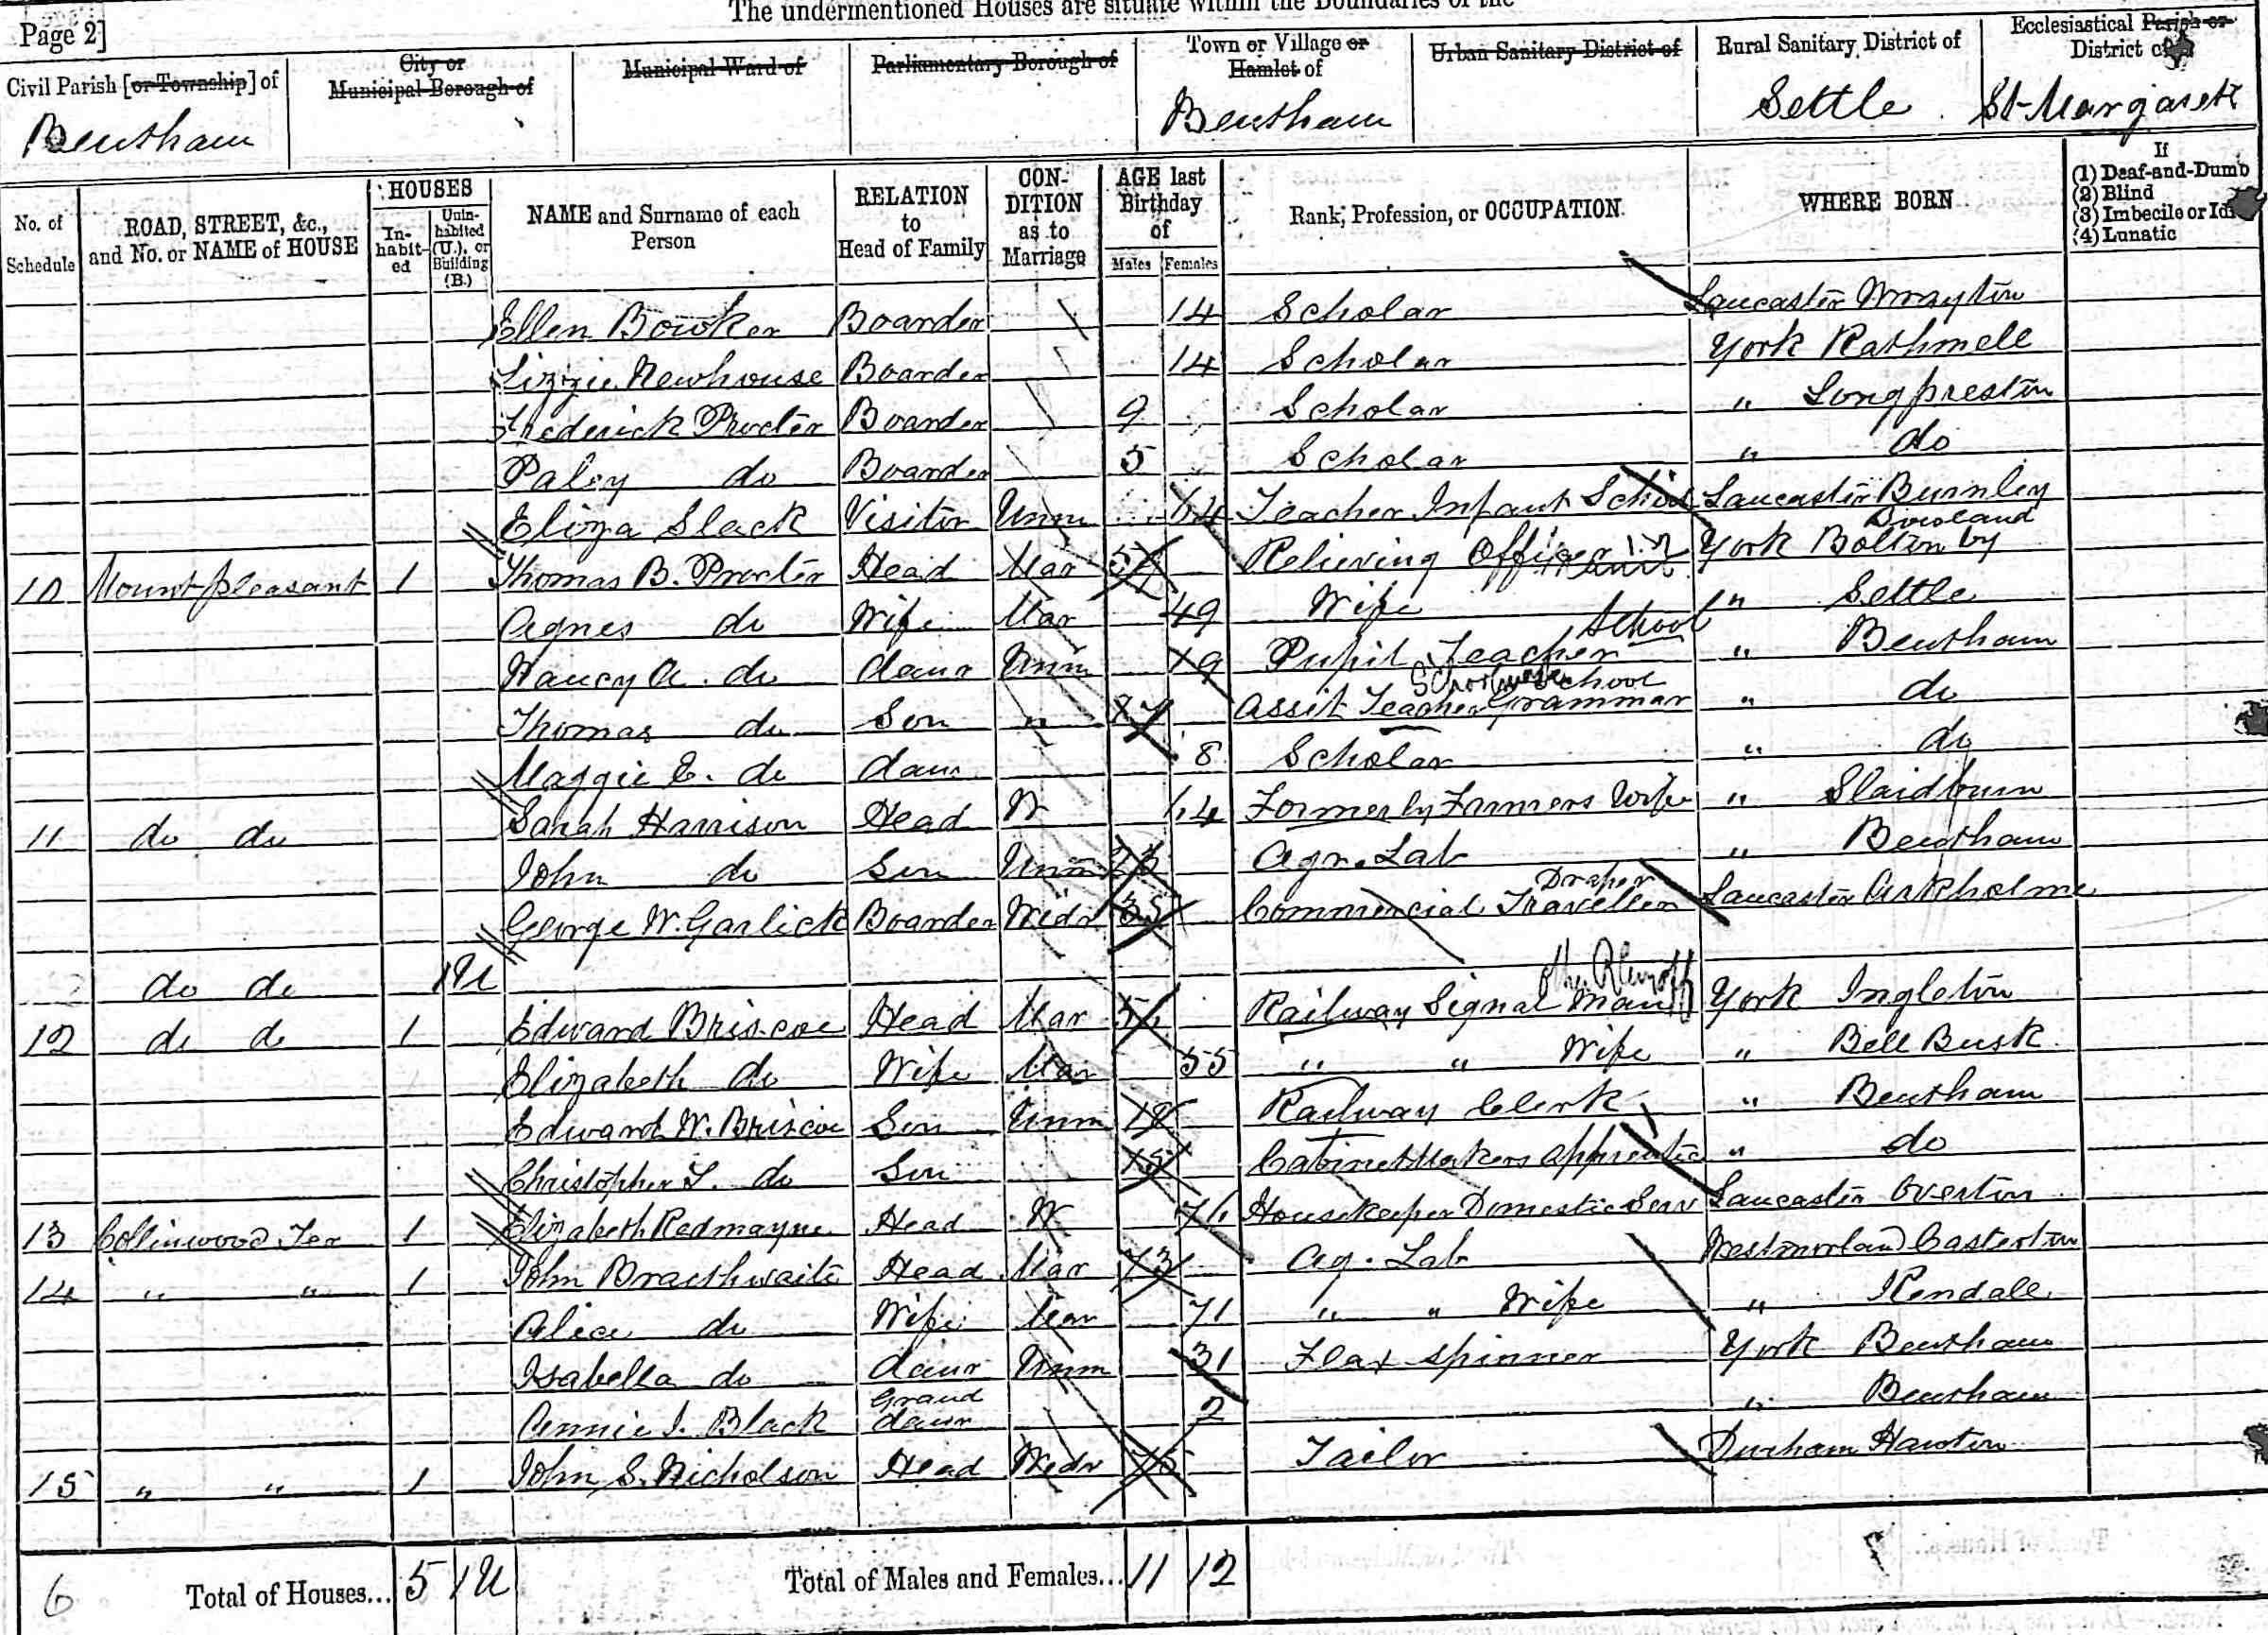 The undermentioned Houses are situate within the Boundaries of the
Page 2]
Civil Parish [or Township] of
Bentham
City or
Municipal Borough of
Municipal Ward of
Parliamentary Borough of
Town or Village or
Hamlet of
Bentham
Urban Sanitary District of
Rural Sanitary District of
Settle
Ecclesiastical Parish or
District of
St Margarets
No. of
Schedule
ROAD, STREET, &c.,
and No. or NAME of HOUSE
HOUSES
In-
habit-
ed
Unin-
habited
(U.), or
Building
(B.)
NAME and Surname of each
Person
RELATION
to
Head of Family
CON-
DITION
as to
Marriage
AGE last
Birthday
of
Males Females
Rank, Profession, or OCCUPATION
WHERE BORN
If
(1) Deaf-and-Dumb
(2) Blind
(3) Imbecile or Idi
(4) Lunatic
Ellen Bowker Boarder 14 Scholar Lancaster Wrayton
Lizzie Newhouse Boarder 14 Scholar York Rathmell
Frederick Procter Boarder 9 Scholar " Longpreston
Paley do Boarder 5 Scholar " do
Eliza Slack Visitor Unm Teacher Infant School Lancaster Burnley
10 Mount pleasant 1 Thomas B. Procter Head Mar Relieving Officer York Bolton by Bowland
Agnes do Wife Mar 49 Wife " Settle
Nancy A. do daur Unm 19 Pupil Teacher School " Bentham
Thomas do Son " Assit Teacher Grammar School " do
Maggie E. do daur 8 Scholar " do
11 do do Sarah Harrison Head W Formerly Farmers Wife " Slaidburn
John do Son Unm Agr. Lab " Bentham
George W. Garlick Boarder Widr 35 Commercial Traveller Draper Lancaster Arkholme
do do 1U
12 do do 1 Edward Briscoe Head Mar Railway Signal Man York Ingleton
Elizabeth do Wife Mar 55 " " Wife " Bell Busk
Edward W. Briscoe Son Unm 18 Railway Clerk " Bentham
Christopher L. do Son 15 Cabinet Makers apprentice " do
13 Collinwood Ter 1 Elizabeth Redmayne Head W 76 Housekeeper Domestic Serv Lancaster Overton
14 " " 1 John Braithwaite Head Mar 73 Ag. Lab Westmorland Casterton
Alice do Wife Mar 71 " " Wife " Kendall
Isabella do daur Unm 31 Flax Spinner York Bentham
Annie I. Black Grand daur 2 " Bentham
15 " " 1 John S. Nicholson Head Widr Tailor Durham
6 Total of Houses... 5 1U Total of Males and Females... 11 12